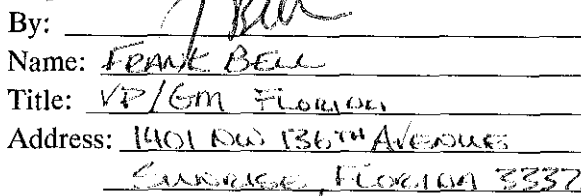 By:
Name: FRANK BELL
Title: VP/GM FLORIDA
Address: 1401 NW 136TH AVENUE
SUNRISE, FLORIDA 3332